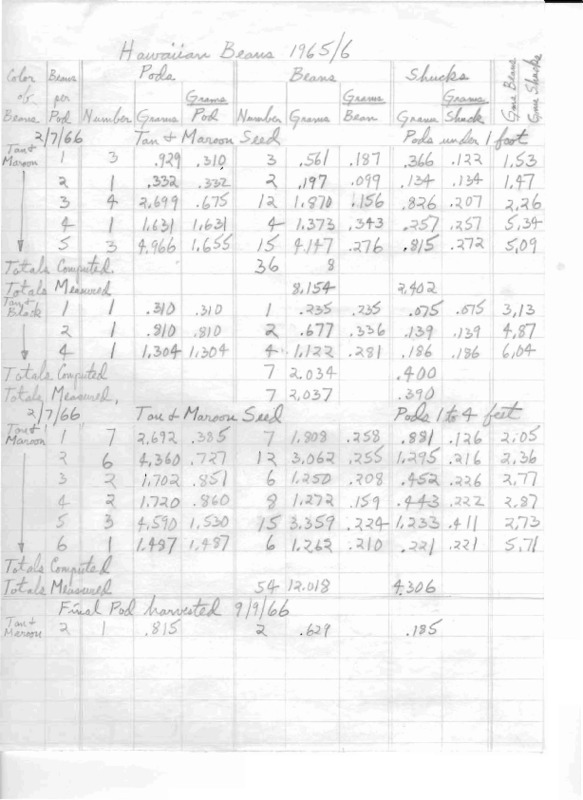 Hawaiian Beans 1965/6
Color Beans Pods Beans Shucks Gms Beans
of per Grams Grams Grams Gms Shucks
Beans Pod Number Grams Pod Number Grams Bean Grams Shuck
2/7/66 Tan & Maroon Seed Pods under 1 foot
Tan &
Maroon 1 3 .929 .310 3 .561 .187 .366 .122 1.53
2 1 .332 .332 2 .197 .099 .134 .134 1.47
3 4 2.699 .675 12 1.870 .156 .826 .207 2.26
4 1 1.631 1.631 4 1.373 .343 .257 .257 5.34
5 3 4.966 1.655 15 4.147 .276 .815 .272 5.09
Totals Computed. 36 8
Totals Measured 8.154 2.402
Tan &
Black 1 1 .310 .310 1 .235 .235 .075 .075 3.13
2 1 .810 .810 2 .677 .336 .139 .139 4.87
4 1 1.304 1.304 4 1.122 .281 .186 .186 6.04
Totals Computed 7 2.034 .400
Totals Measured. 7 2.037 .390
2/7/66 Tan & Maroon Seed Pods 1 to 4 feet
Tan &
Maroon 1 7 2.692 .385 7 1.808 .258 .881 .126 2.05
2 6 4.360 .727 12 3.062 .255 1.295 .216 2.36
3 2 1.702 .851 6 1.250 .208 .452 .226 2.77
4 2 1.720 .860 8 1.272 .159 .443 .222 2.87
5 3 4.590 1.530 15 3.359 .224 1.233 .411 2.73
6 1 1.487 1.487 6 1.262 .210 .221 .221 5.71
Totals Computed
Totals Measured 54 12.018 4.306
Final Pod harvested 9/9/66
Tan &
Maroon 2 1 .815 2 .629 .185